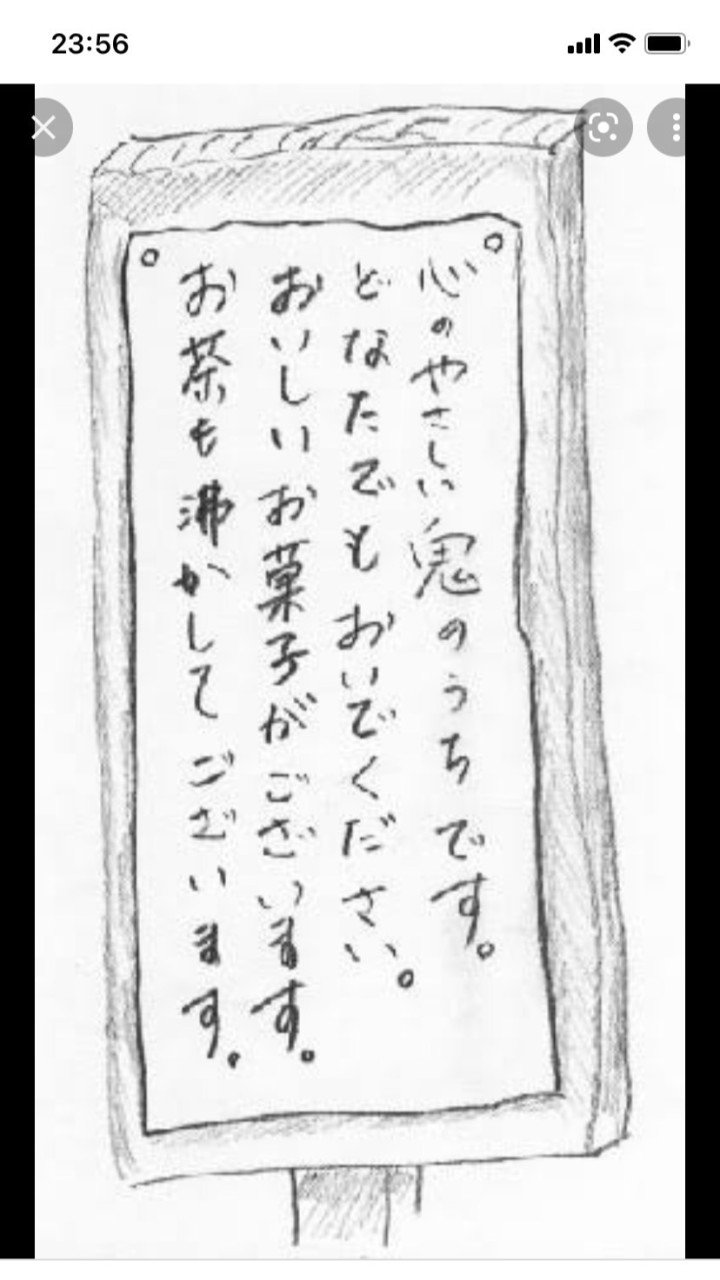 23:56
心のやさしい鬼のうちです。
どなたでもおいでください。
おいしいお菓子がございます。
お茶も沸かしてございます。